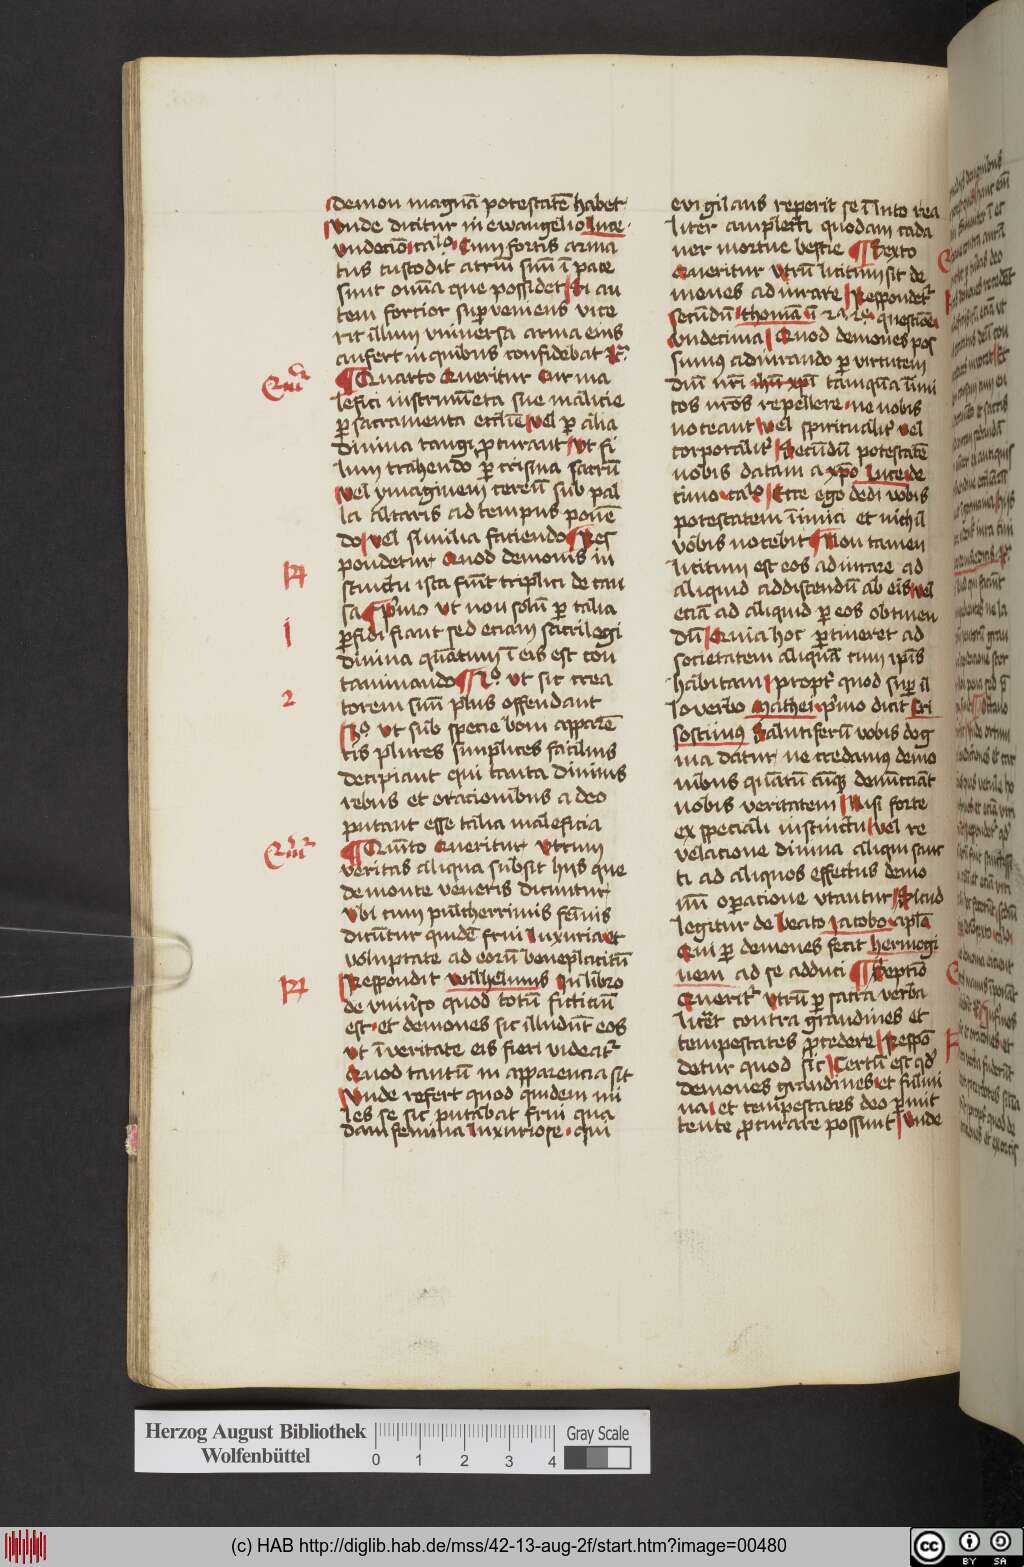 demon magnā potestatē habet
Unde dicitur in ewangelio Luce
undecīo calᵒ. Cum fortis arma
tus custodit atriū suū ī pace
sunt oīnia que possidet Si au
tem fortior superveniens vice
rit illum universa arma eius
aufert in quibus confidebat Rᵃ
Quarto Queritur Cur ma
lefici instrumēta sue malicie
per sacramenta ecclīe vel per alia
divina tangi procurant Ut fi
lum trahendo per crisma sacrū
vel ymaginem cereū sub pal
la altaris ad tempus ponē
do vel similia faciendo Res
pondetur Quod demonis in
stinctu ista fiūt triplici de cau
sa Primo ut non solū per talia
perfidi fiant sed eciam sacrilegi
divina quātum ī eis est con
taminando 2ᵒ. ut sic crea
torem suū plus offendant
3ᵒ ut sub specie boni apparē
tis plures simplices facilius
decipiant qui tanta divinis
rebus et oracionibus a deo
putant esse talia maleficia
Quīto Queritur Utrum
veritas aliqua subsit hijs que
de monte veneris dicuntur
Ubi cum pulcherrimis fēinis
dicūtur quidē frui luxuria et
voluptate ad eorū beneplacitū
Respondit Wilhelmus in libro
de univ'so quod totū ficticiū
est et demones sic illudūt eos
ut ī veritate eis fieri videat'
Quod tantū in apparencia sit
Unde refert quod quidem mi
les se sic putabat frui qua
dam femina luxuriose. qui
Qᵐ
R
1
2
Qᵐ
R
evigilans reperit se ī luto rea
liter amplecti quodam cada
ver mortue bestie Sexto
Queritur Utrū licitum sit de
mones adiurare Respondet'
secūdū thomā ī 2ᵃ 2ᵉ. questiōe
undecima Quod demones pos
sumus adiurando per virtutem
dnī nrī ihū xpī tāmquā inimi
cos nros repellere. ne nobis
noceant vel spiritualit' vel
corporalit' Secūdū potestatē
nobis datam a xpo Luce de
cimo calᵒ Ecce ego dedi vobis
potestatem inimici et nichil
vobis nocebit Non tamen
licitum est eos adiurare ad
aliquid addiscendū ab eis vel
eciā ad aliquid per eos obtinen
dū Quia hoc pertineret ad
societatem aliquā cum ipīs
habitam propt' quod super il
lo verbo Mathei primo dicit Cri
sostimus Salutiferū vobis dog
ma datur ne credamus demo
nibus quātū cūque denūciāt
nobis veritatem Nisi forte
ex speciali instinctu vel re
velacione divina aliqui sanc
ti ad aliquos effectus demo
nū operacione utantur Sicud
legitur de beato Jacobo aplo
Qui per demones fecit hermogi
nem ad se adduci Septīo
Querit' Utrū per sacra verba
licet contra grandines et
tempestates procedere Respō
detur quod sic Certū est qd
demones grandines et fulmi
na et tempestates deo permit
tente procurare possunt Unde
Herzog August Bibliothek
Wolfenbüttel
0 1 2 3 4
Gray Scale
(c) HAB http://diglib.hab.de/mss/42-13-aug-2f/start.htm?image=00480
cc BY SA